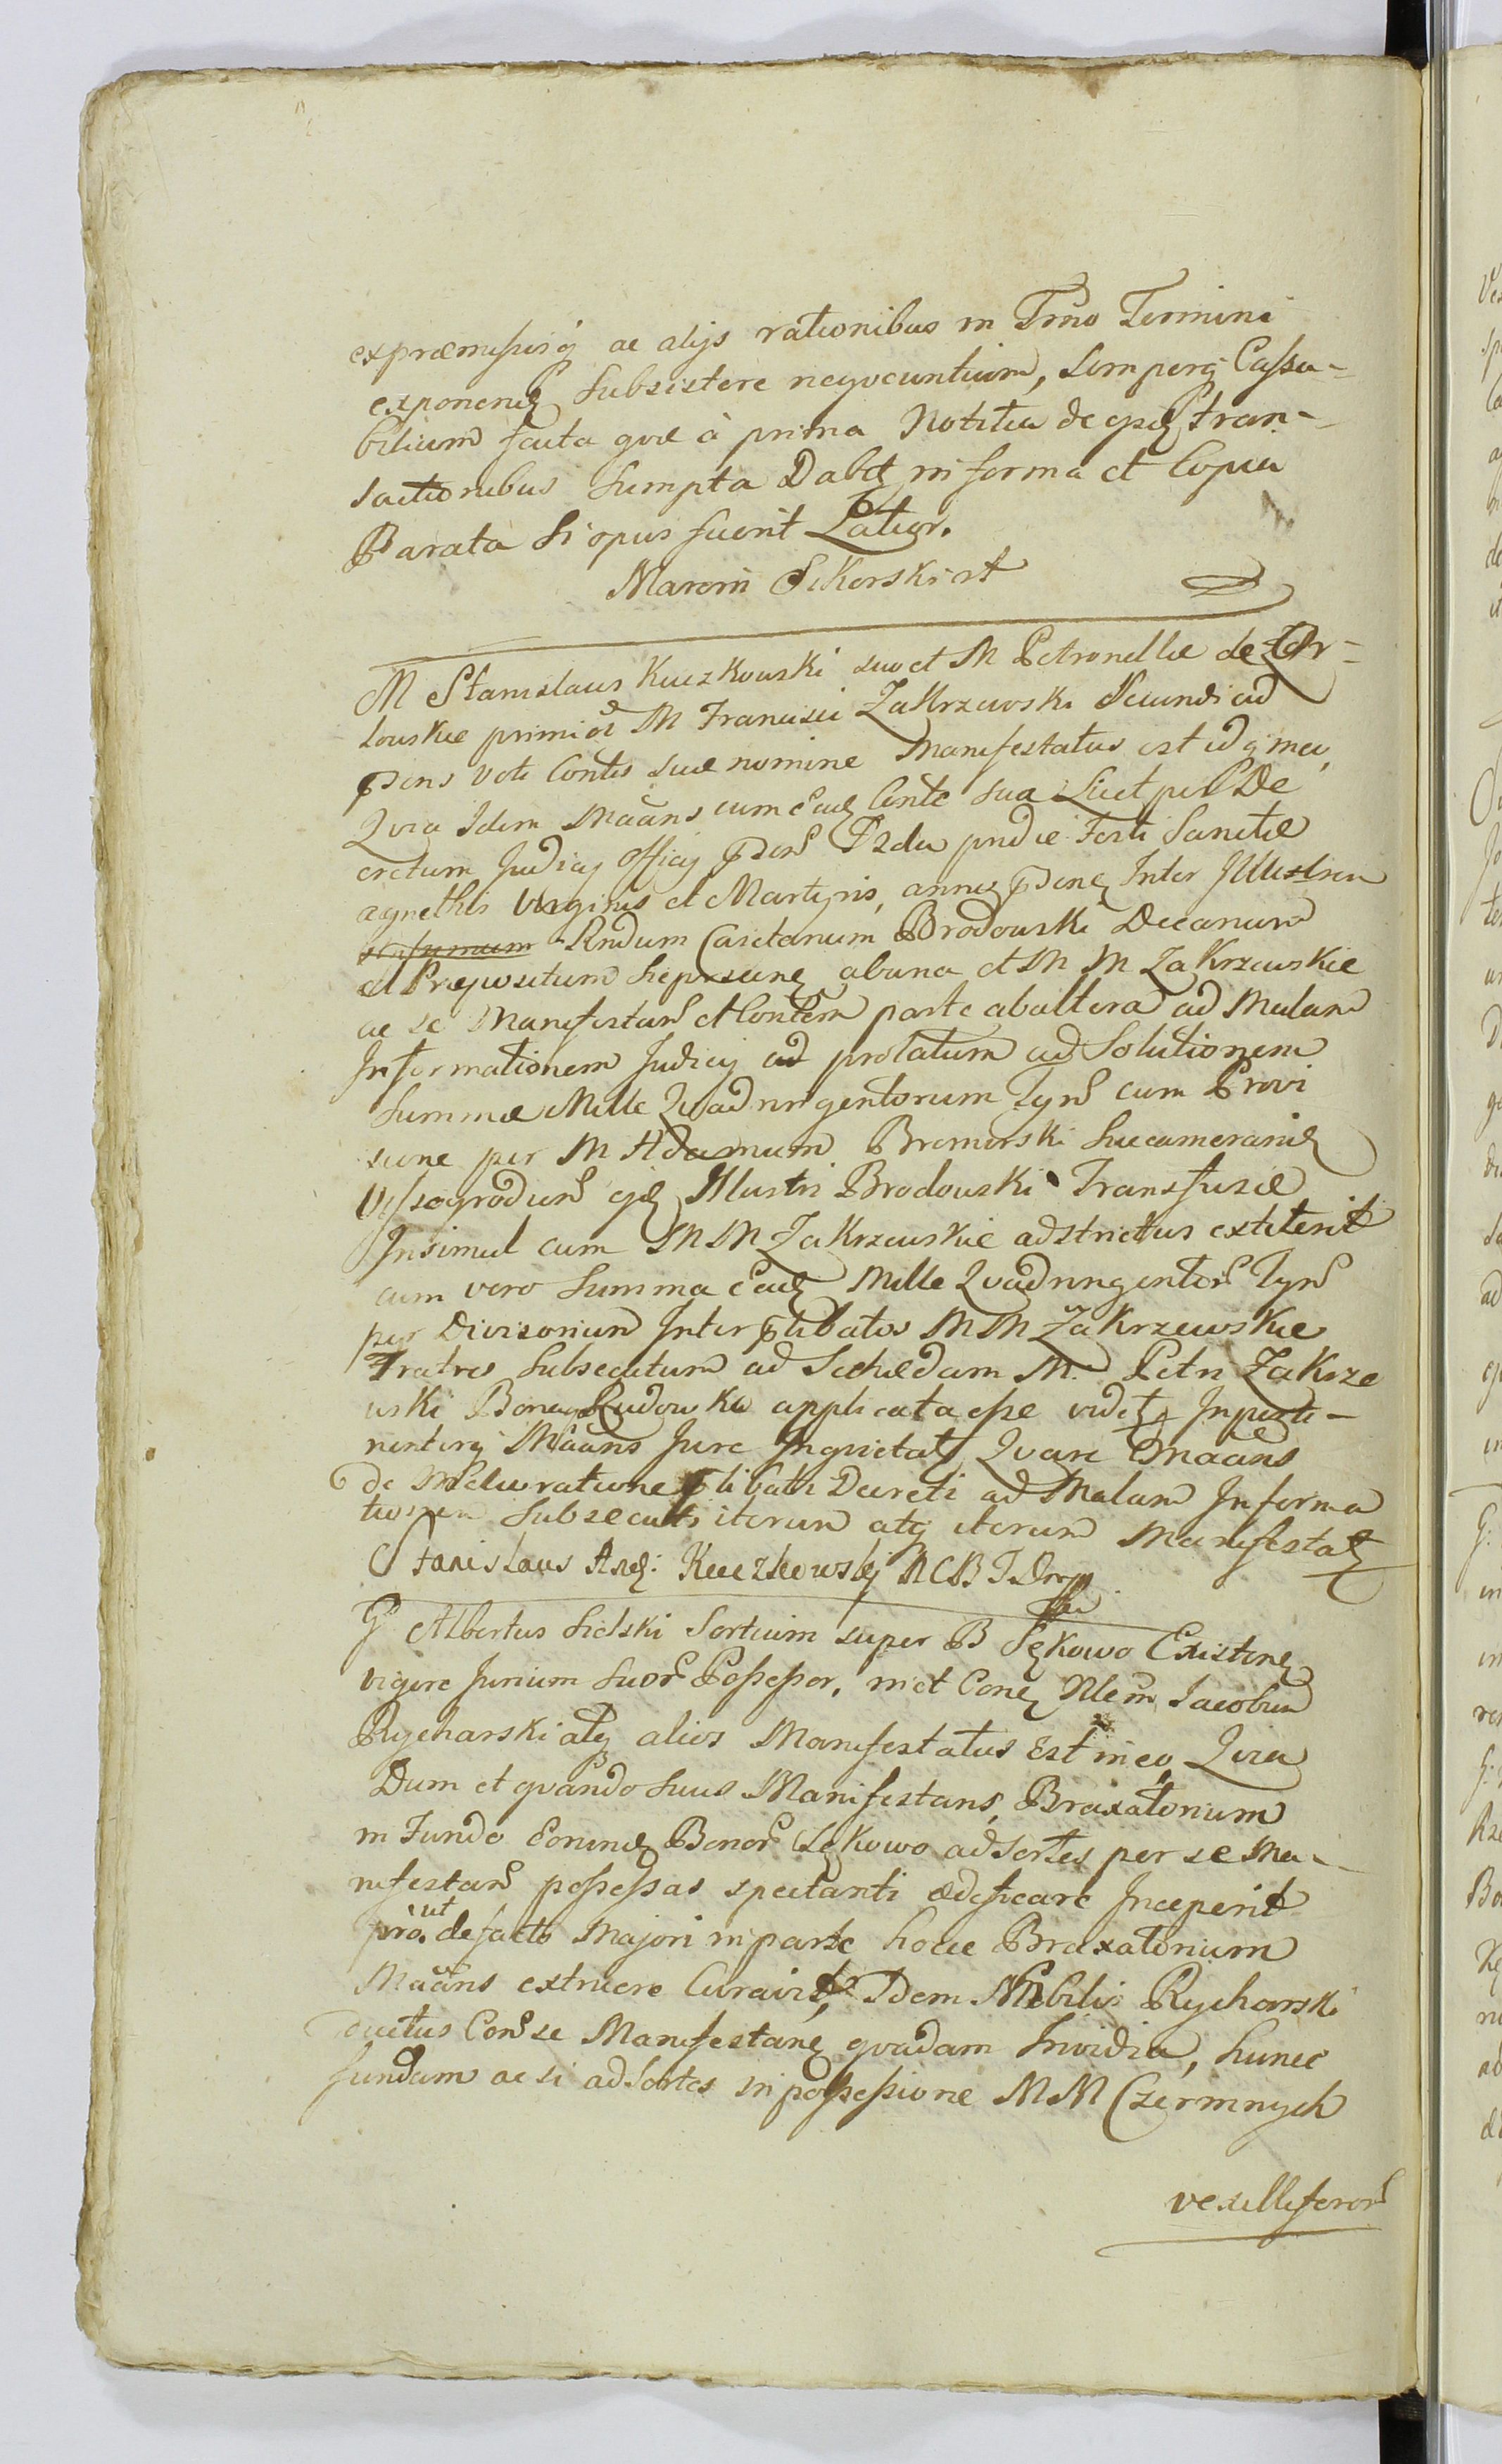 expræmissisq ac alijs rationibus in Trno Termini
exponend Subsistere negocuntium, Semperq Cassa-
bilium facta qvæ à prima Notitia de ejsd tran-
sactionibus Sumpta Dabt in forma et Copia
Parata Si opus fuerit Latior.
Marcin Sikorski rt
M Stanislaus Kuczkowski suo et M Petronellæ de Or-
lowskie primi et M Francisci Zakrzewski Secundi ad
præns Voti Contis suæ nomine Manifestatus est id q meo,
Qvia Idem Maans cum eadz Conte sua Licet per De
cretum Judicij Officij præns Dzda pridie Festi Sanctæ
agnethis Virginis et Martyris, annis prænt Inter Illustrem
Rndum Caietanum Brodowski Decanum
et Præpositum Sieprscens abuna et M M Zakrzewskie
ac se Manifestan et Contem parte ab altera ad Malam
Informationem Judicij ad prolatum ad Solutionem
Summæ Mille Qvadringentorum Tyn cum Provi
sione per M Adamum Bromirski Succamerarid
Wyssogroden ejd Illustri Brodowski Transfusæ
Insimul cum M M Zakrzewskie adstrictus extiterit
cum vero Summa eadz Mille Qvadringentor Tyn
per Divisorium Inter ptibatos M M Zakrzewskie
Fratres Subsecutum ad Schedam M. Petri Zakrze
wski Bona Rudowka applicata esse vidt Inperti-
nenterq Maans Jure Inqvietat Qvare Maans
de Melioratione ptibati Decreti ad Malam Informa
tionem Subsecuti iterum atq iterum Manifestat
Stanislaus And: Kuczkowskj
G Albertus Sielski Sortium super B Sękowo Existend
vigore Jurium Suor Possessor, in et Cone Nlem Jacobum
Rycharski atq alios Manifestatus Est in eo, Qvia
Dum et qvando Suus Manifestans, Braxatorium
in Fundo Eorund Bonor Sękowo ad sortes per se Ma-
nifestan possessas spectanti ædificare Inceperit
prout de facto Majori in parte hocce Braxatorium
Maans extruere Curavit, Idem Nobilis Rycharski
ductus Con se Manifestand qvadam Invidia, hunce
fundum ac si ad Sortes in possessione M M Czermnych
vexilliferor